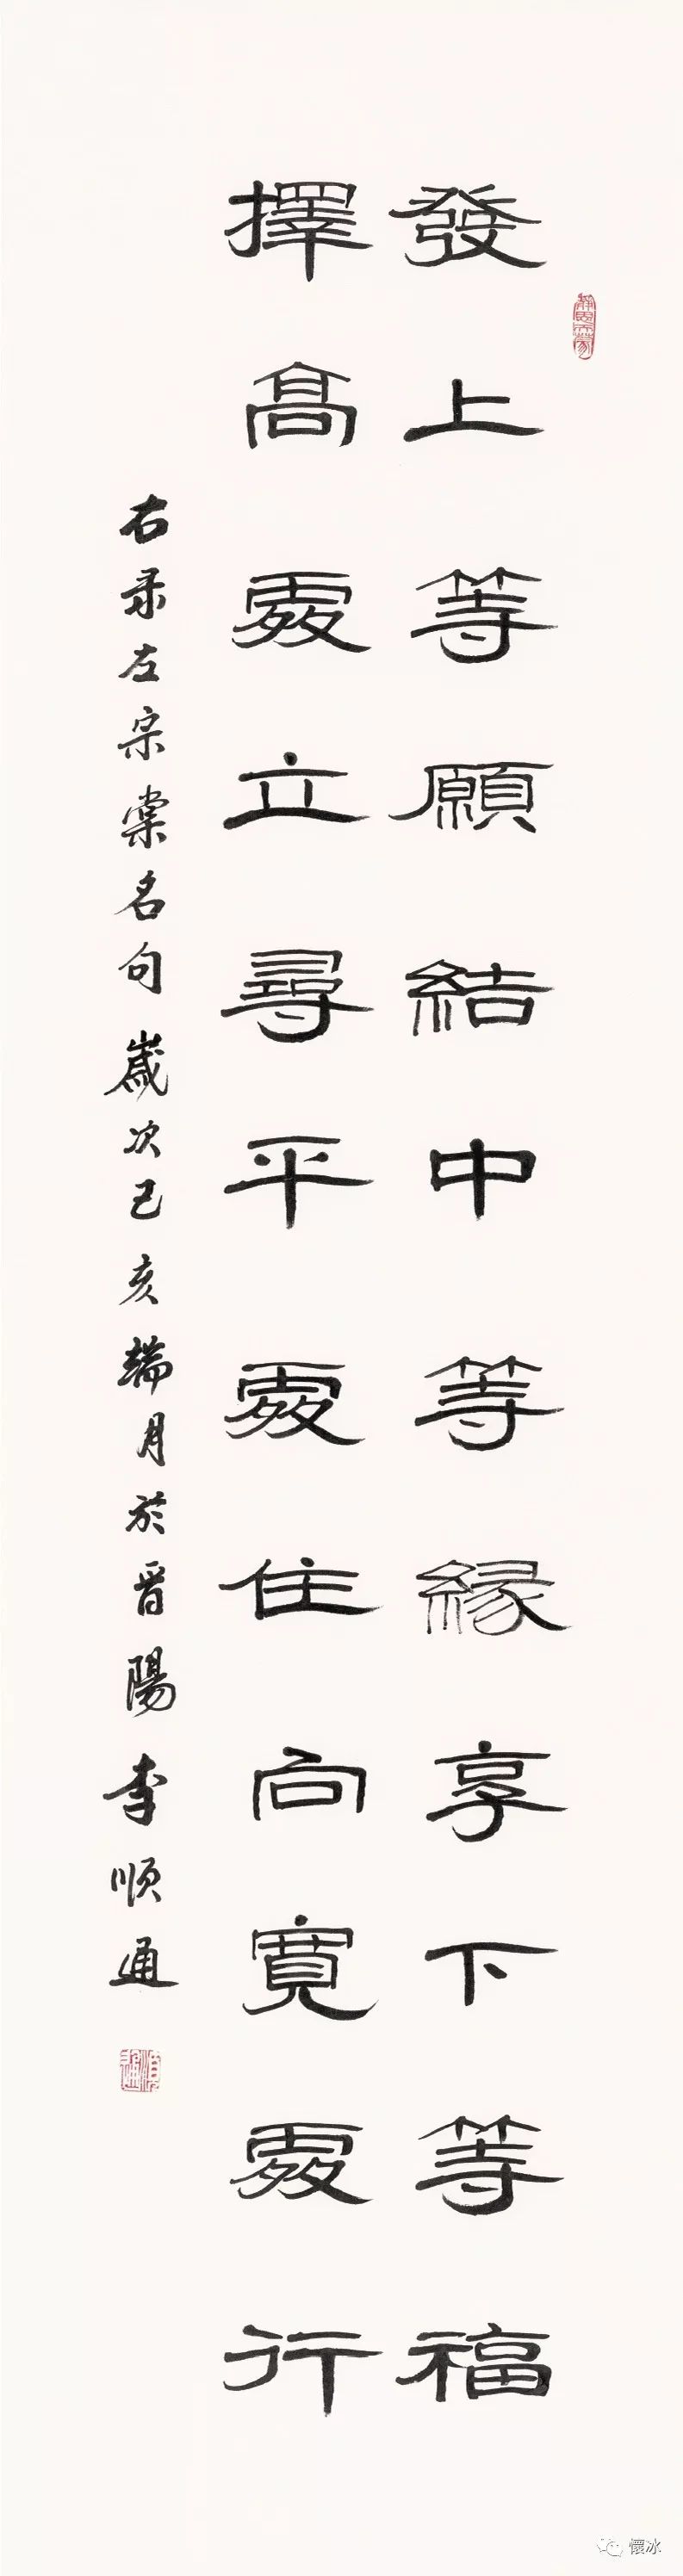 發上等願結中等緣享下等福
擇高處立尋平處住向寬處行
右录左宗棠名句歲次己亥端月於晉陽李順通
順通
懷冰